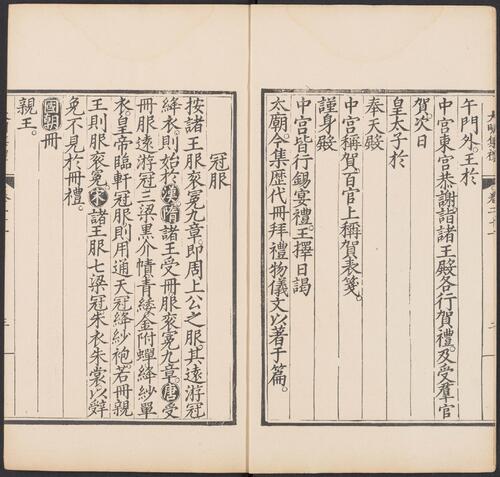 午門外。王於
中宮東宮恭謝詣諸王殿各行賀禮。及受羣官
賀次日
皇太子於
奉天殿
中宮稱賀。百官上稱賀表箋。
謹身殿
中宮皆行錫宴禮。王擇日謁
太廟。今集歷代冊拜禮物儀文以著于篇。
冠服
按諸王服袞冕九章。即周上公之服。其遠游冠
絳衣。則始於漢。隋諸王受冊服袞冕九章。唐受
冊服遠游冠三梁黑介幘青緌。金附蟬絳紗單
衣。皇帝臨軒冠服則用通天冠絳紗袍。若冊親
王則服袞冕。宋諸王服七梁冠朱衣朱裳。以辭
免不見於冊禮。
國朝冊
親王。